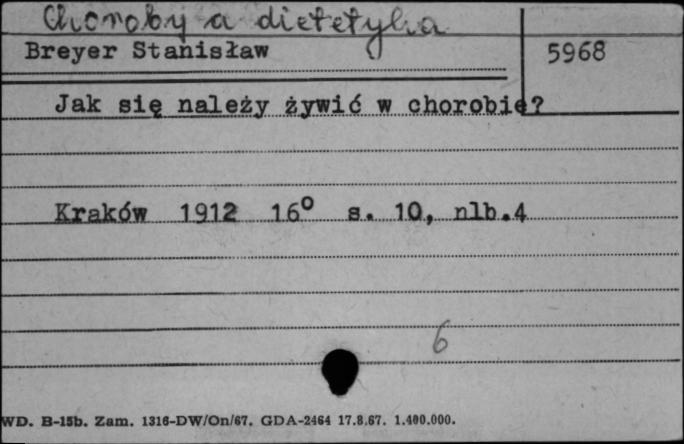 Choroby a dietetyka
Breyer Stanisław 5968
Jak się należy żywić w chorobie?
Kraków 1912 16° s. 10, nlb.4
6
WD. B-15b. Zam. 1316-DW/On/67. GDA-2464 17.8.67. 1.400.000.